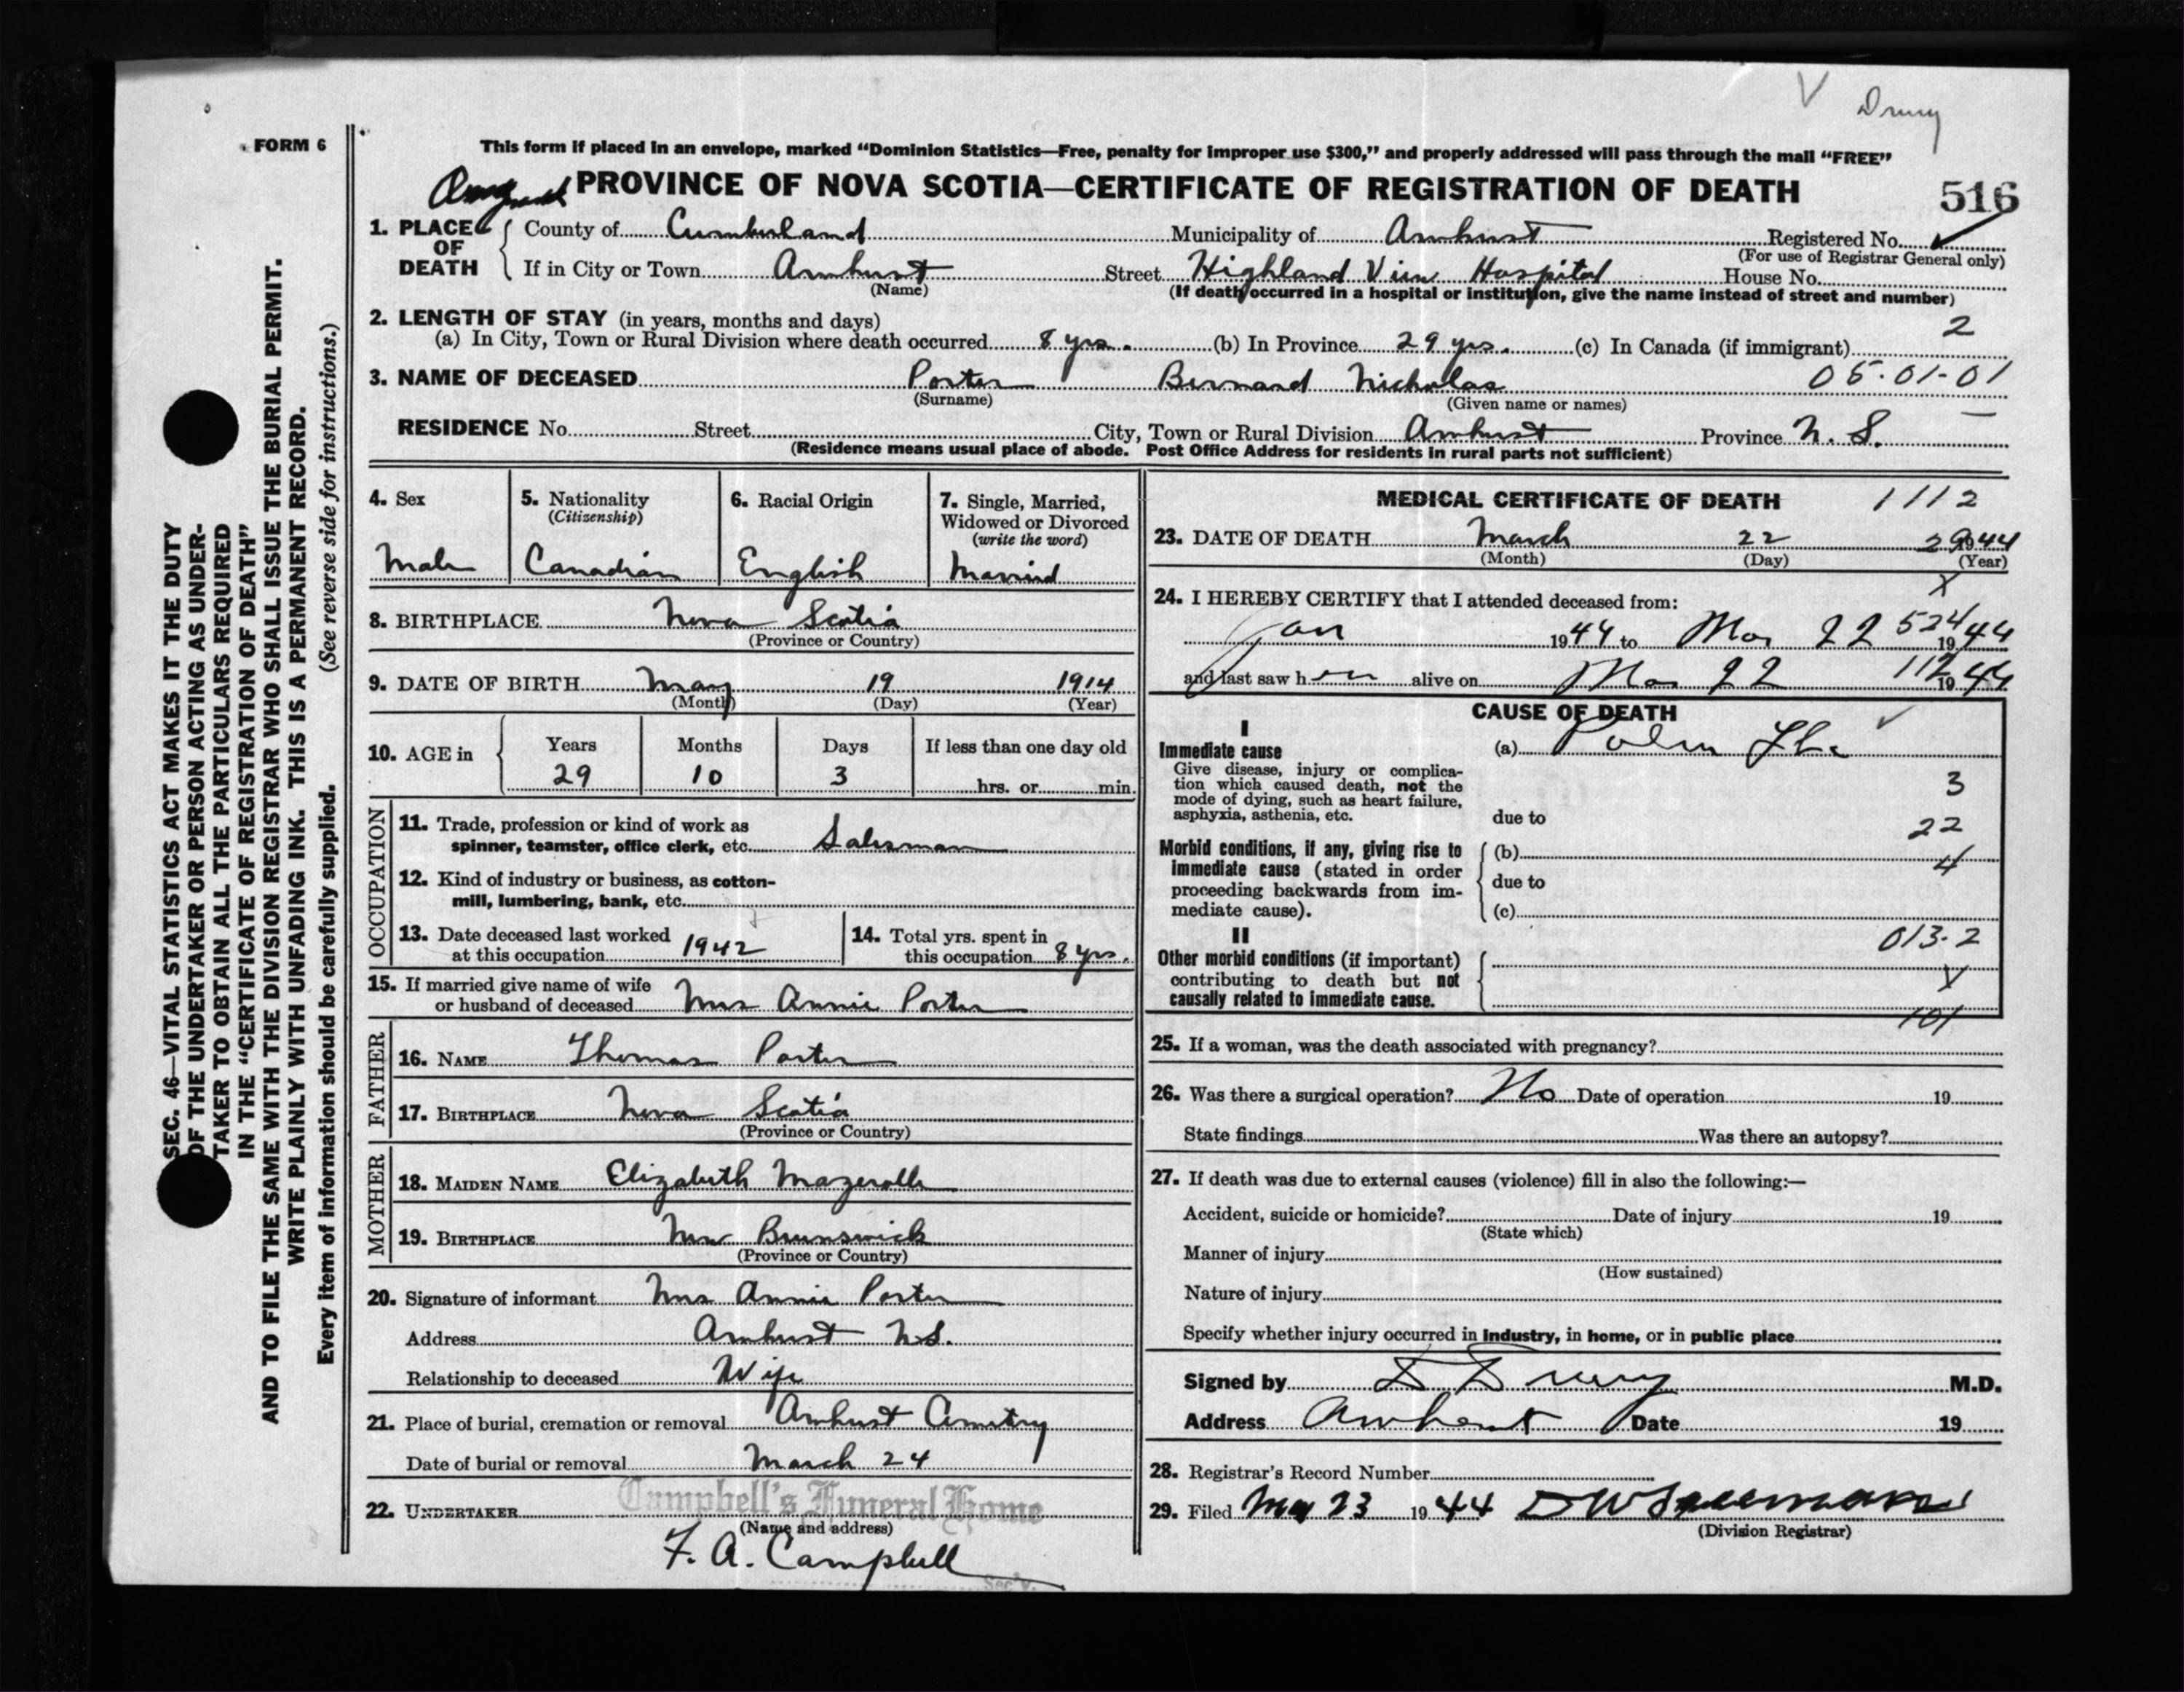 V Drury
FORM 6
This form if placed in an envelope, marked “Dominion Statistics—Free, penalty for improper use $300,” and properly addressed will pass through the mail “FREE”
PROVINCE OF NOVA SCOTIA—CERTIFICATE OF REGISTRATION OF DEATH
516
1. PLACE OF DEATH County of Cumberland Municipality of Amherst Registered No.
(For use of Registrar General only)
If in City or Town Amherst Street Highland View Hospital House No.
(Name) (If death occurred in a hospital or institution, give the name instead of street and number)
2. LENGTH OF STAY (in years, months and days)
(a) In City, Town or Rural Division where death occurred 8 yrs. (b) In Province 29 yrs. (c) In Canada (if immigrant) 2
3. NAME OF DECEASED Porter Bernard Nicholas 05-01-01
(Surname) (Given name or names)
RESIDENCE No. Street City, Town or Rural Division Amherst Province N. S.
(Residence means usual place of abode. Post Office Address for residents in rural parts not sufficient)
4. Sex Male
5. Nationality (Citizenship) Canadian
6. Racial Origin English
7. Single, Married, Widowed or Divorced (write the word) Married
8. BIRTHPLACE Nova Scotia
(Province or Country)
9. DATE OF BIRTH May 19 1914
(Month) (Day) (Year)
10. AGE in Years Months Days If less than one day old
29 10 3 hrs. or min.
OCCUPATION
11. Trade, profession or kind of work as
spinner, teamster, office clerk, etc. Salesman
12. Kind of industry or business, as cotton-
mill, lumbering, bank, etc.
13. Date deceased last worked
at this occupation 1942
14. Total yrs. spent in
this occupation 8 yrs.
15. If married give name of wife
or husband of deceased Mrs Annie Porter
FATHER
16. NAME Thomas Porter
17. BIRTHPLACE Nova Scotia
(Province or Country)
MOTHER
18. MAIDEN NAME Elizabeth Mazerolle
19. BIRTHPLACE New Brunswick
(Province or Country)
20. Signature of informant Mrs Annie Porter
Address Amherst N.S.
Relationship to deceased Wife
21. Place of burial, cremation or removal Amherst Cemetry
Date of burial or removal March 24
22. UNDERTAKER Campbell's Funeral Home
(Name and address)
F. A. Campbell
Sec'y.
MEDICAL CERTIFICATE OF DEATH 1112
23. DATE OF DEATH March 22 1944
(Month) (Day) (Year)
24. I HEREBY CERTIFY that I attended deceased from: X
Jan 1944 to Mar 22 524 1944
and last saw h alive on Mar 22 112 1944
CAUSE OF DEATH
I
Immediate cause (a) Pulm
Give disease, injury or complica-
tion which caused death, not the
mode of dying, such as heart failure,
asphyxia, asthenia, etc. due to
3
22
4
Morbid conditions, if any, giving rise to
immediate cause (stated in order
proceeding backwards from im-
mediate cause).
(b)
due to
(c)
II
013-2
Other morbid conditions (if important)
contributing to death but not
causally related to immediate cause.
101
25. If a woman, was the death associated with pregnancy?
26. Was there a surgical operation? No Date of operation 19
State findings Was there an autopsy?
27. If death was due to external causes (violence) fill in also the following:—
Accident, suicide or homicide? Date of injury 19
(State which)
Manner of injury
(How sustained)
Nature of injury
Specify whether injury occurred in industry, in home, or in public place
Signed by D Drury M.D.
Address Amherst Date 19
28. Registrar's Record Number
29. Filed Mar 23 1944
(Division Registrar)
SEC. 46—VITAL STATISTICS ACT MAKES IT THE DUTY
OF THE UNDERTAKER OR PERSON ACTING AS UNDER-
TAKER TO OBTAIN ALL THE PARTICULARS REQUIRED
IN THE “CERTIFICATE OF REGISTRATION OF DEATH”
AND TO FILE THE SAME WITH THE DIVISION REGISTRAR WHO SHALL ISSUE THE BURIAL PERMIT.
WRITE PLAINLY WITH UNFADING INK. THIS IS A PERMANENT RECORD.
Every item of information should be carefully supplied. (See reverse side for instructions.)